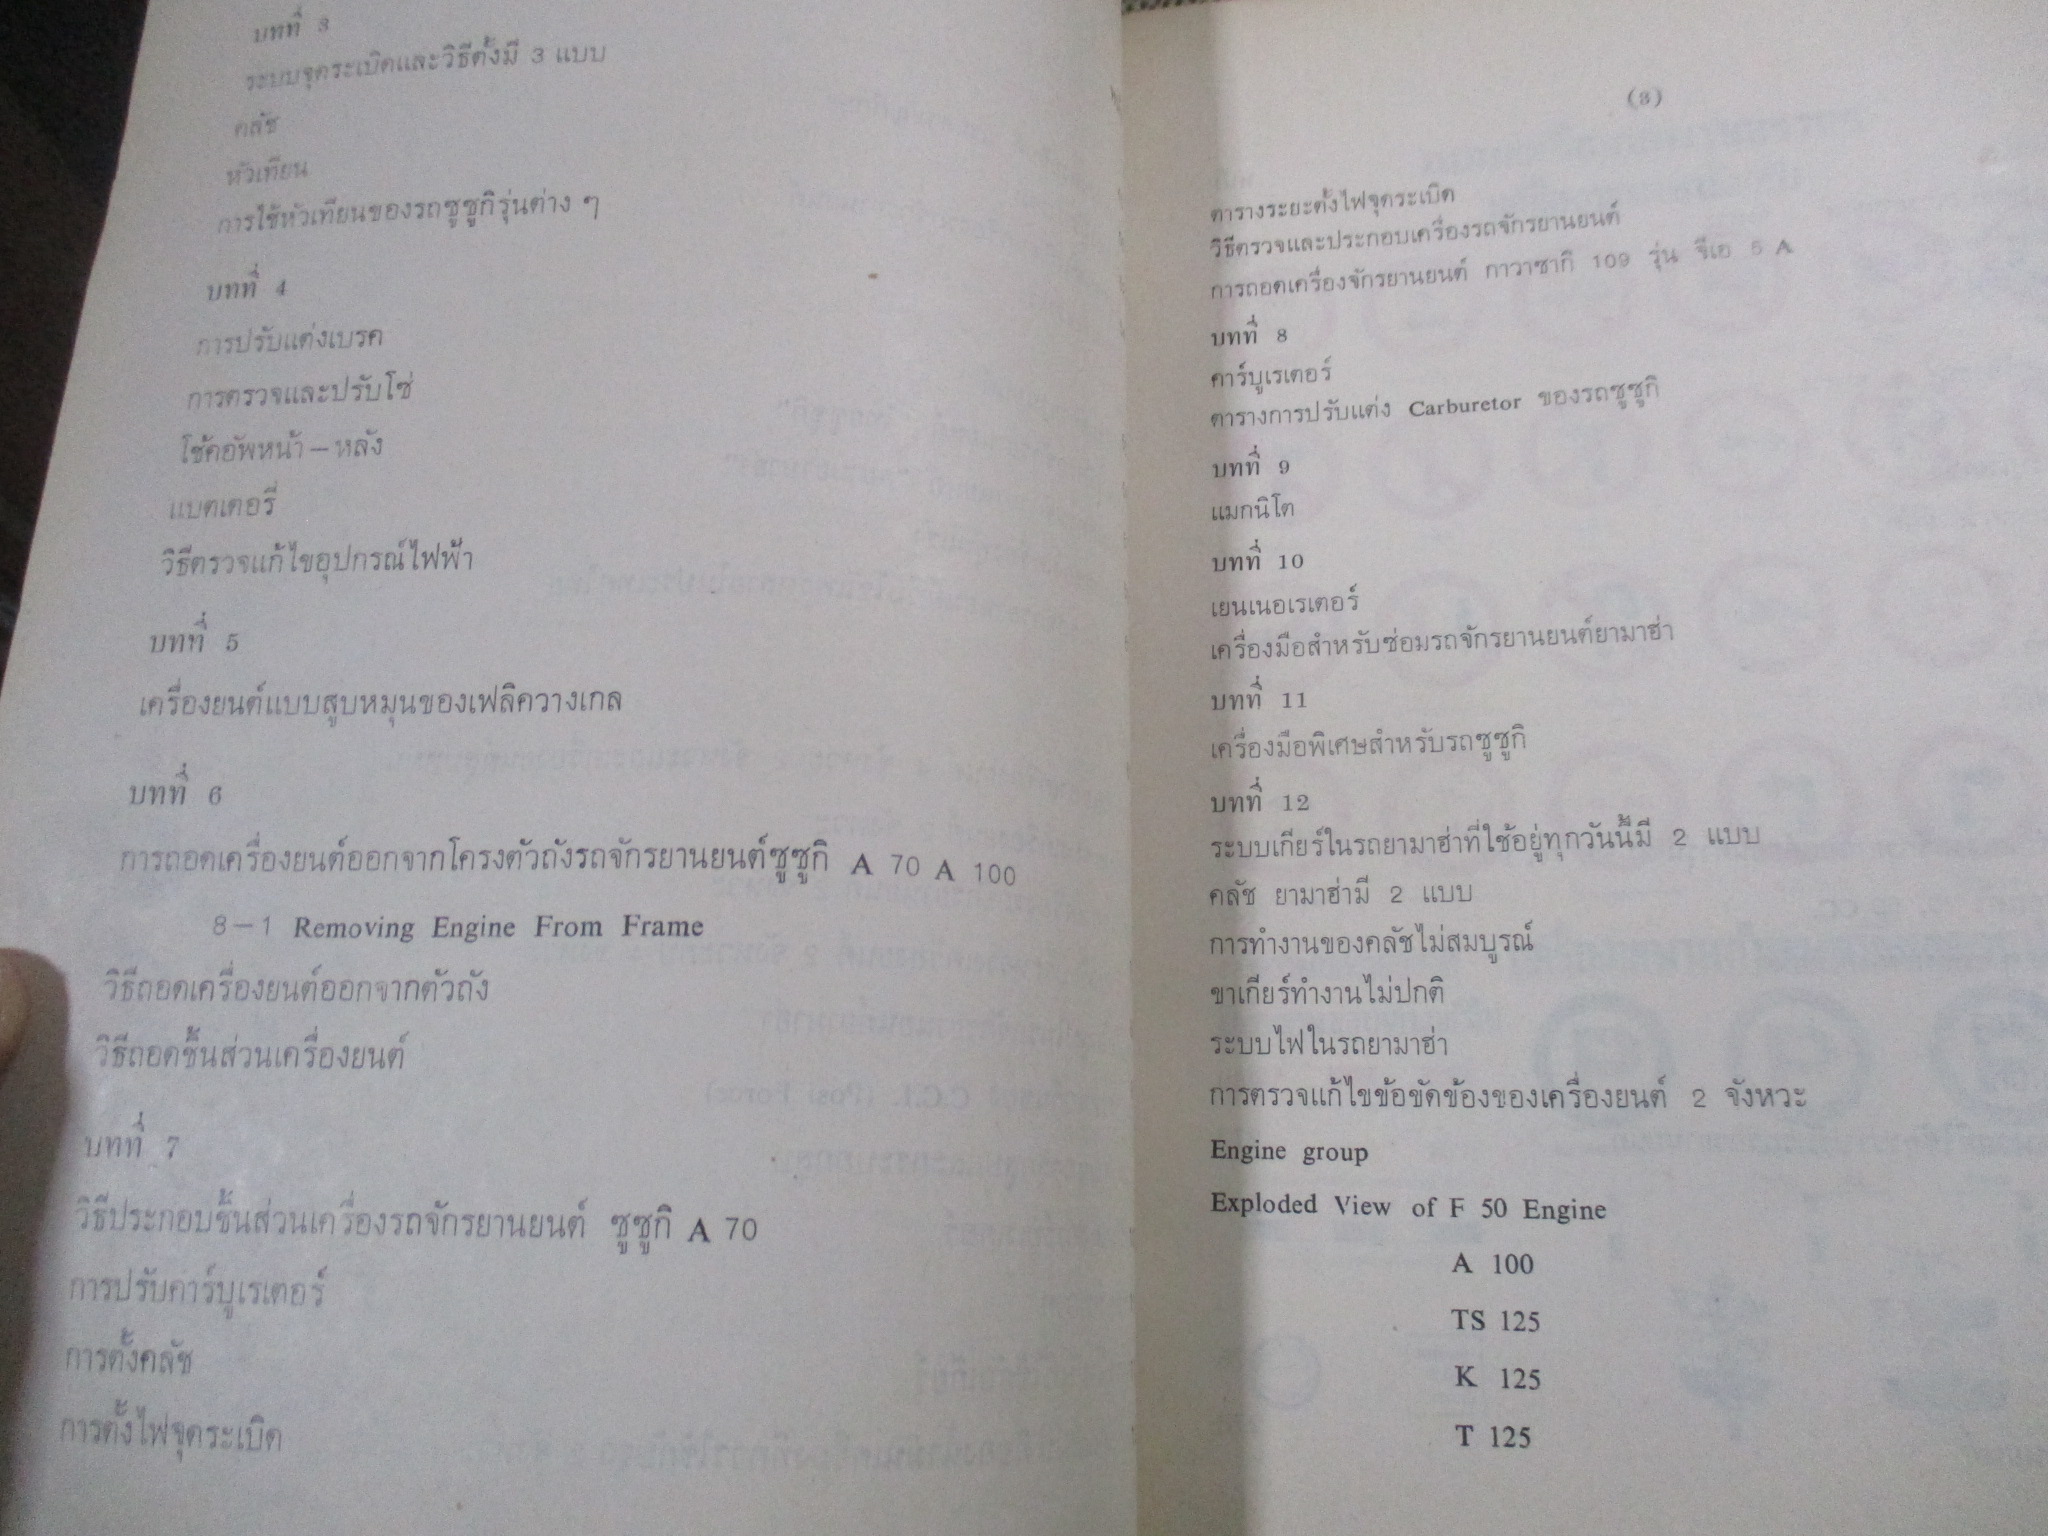 บทที่ 3
ระบบจุดระเบิดและวิธีตั้งมี 3 แบบ
คลัช
หัวเทียน
การใช้หัวเทียนของรถซูซูกิรุ่นต่าง ๆ
บทที่ 4
การปรับแต่งเบรค
การตรวจและปรับโซ่
โช้คอัพหน้า – หลัง
แบตเตอรี่
วิธีตรวจแก้ไขอุปกรณ์ไฟฟ้า
บทที่ 5
เครื่องยนต์แบบสูบหมุนของเฟลิควางเกล
บทที่ 6
การถอดเครื่องยนต์ออกจากโครงตัวถังรถจักรยานยนต์ซูซูกิ A 70 A 100
8–1 Removing Engine From Frame
วิธีถอดเครื่องยนต์ออกจากตัวถัง
วิธีถอดชิ้นส่วนเครื่องยนต์
บทที่ 7
วิธีประกอบชิ้นส่วนเครื่องรถจักรยานยนต์ ซูซูกิ A 70
การปรับคาร์บูเรเตอร์
การตั้งคลัช
การตั้งไฟจุดระเบิด
(3)
ตารางระยะตั้งไฟจุดระเบิด
วิธีตรวจและประกอบเครื่องรถจักรยานยนต์
การถอดเครื่องจักรยานยนต์ กาวาซากิ 109 รุ่น จีเอ 5 A
บทที่ 8
คาร์บูเรเตอร์
ตารางการปรับแต่ง Carburetor ของรถซูซูกิ
บทที่ 9
แมกนิโต
บทที่ 10
เยนเนอเรเตอร์
เครื่องมือสำหรับซ่อมรถจักรยานยนต์ยามาฮ่า
บทที่ 11
เครื่องมือพิเศษสำหรับรถซูซูกิ
บทที่ 12
ระบบเกียร์ในรถยามาฮ่าที่ใช้อยู่ทุกวันนี้มี 2 แบบ
คลัช ยามาฮ่ามี 2 แบบ
การทำงานของคลัชไม่สมบูรณ์
ขาเกียร์ทำงานไม่ปกติ
ระบบไฟในรถยามาฮ่า
การตรวจแก้ไขข้อขัดข้องของเครื่องยนต์ 2 จังหวะ
Engine group
Exploded View of F 50 Engine
A 100
TS 125
K 125
T 125